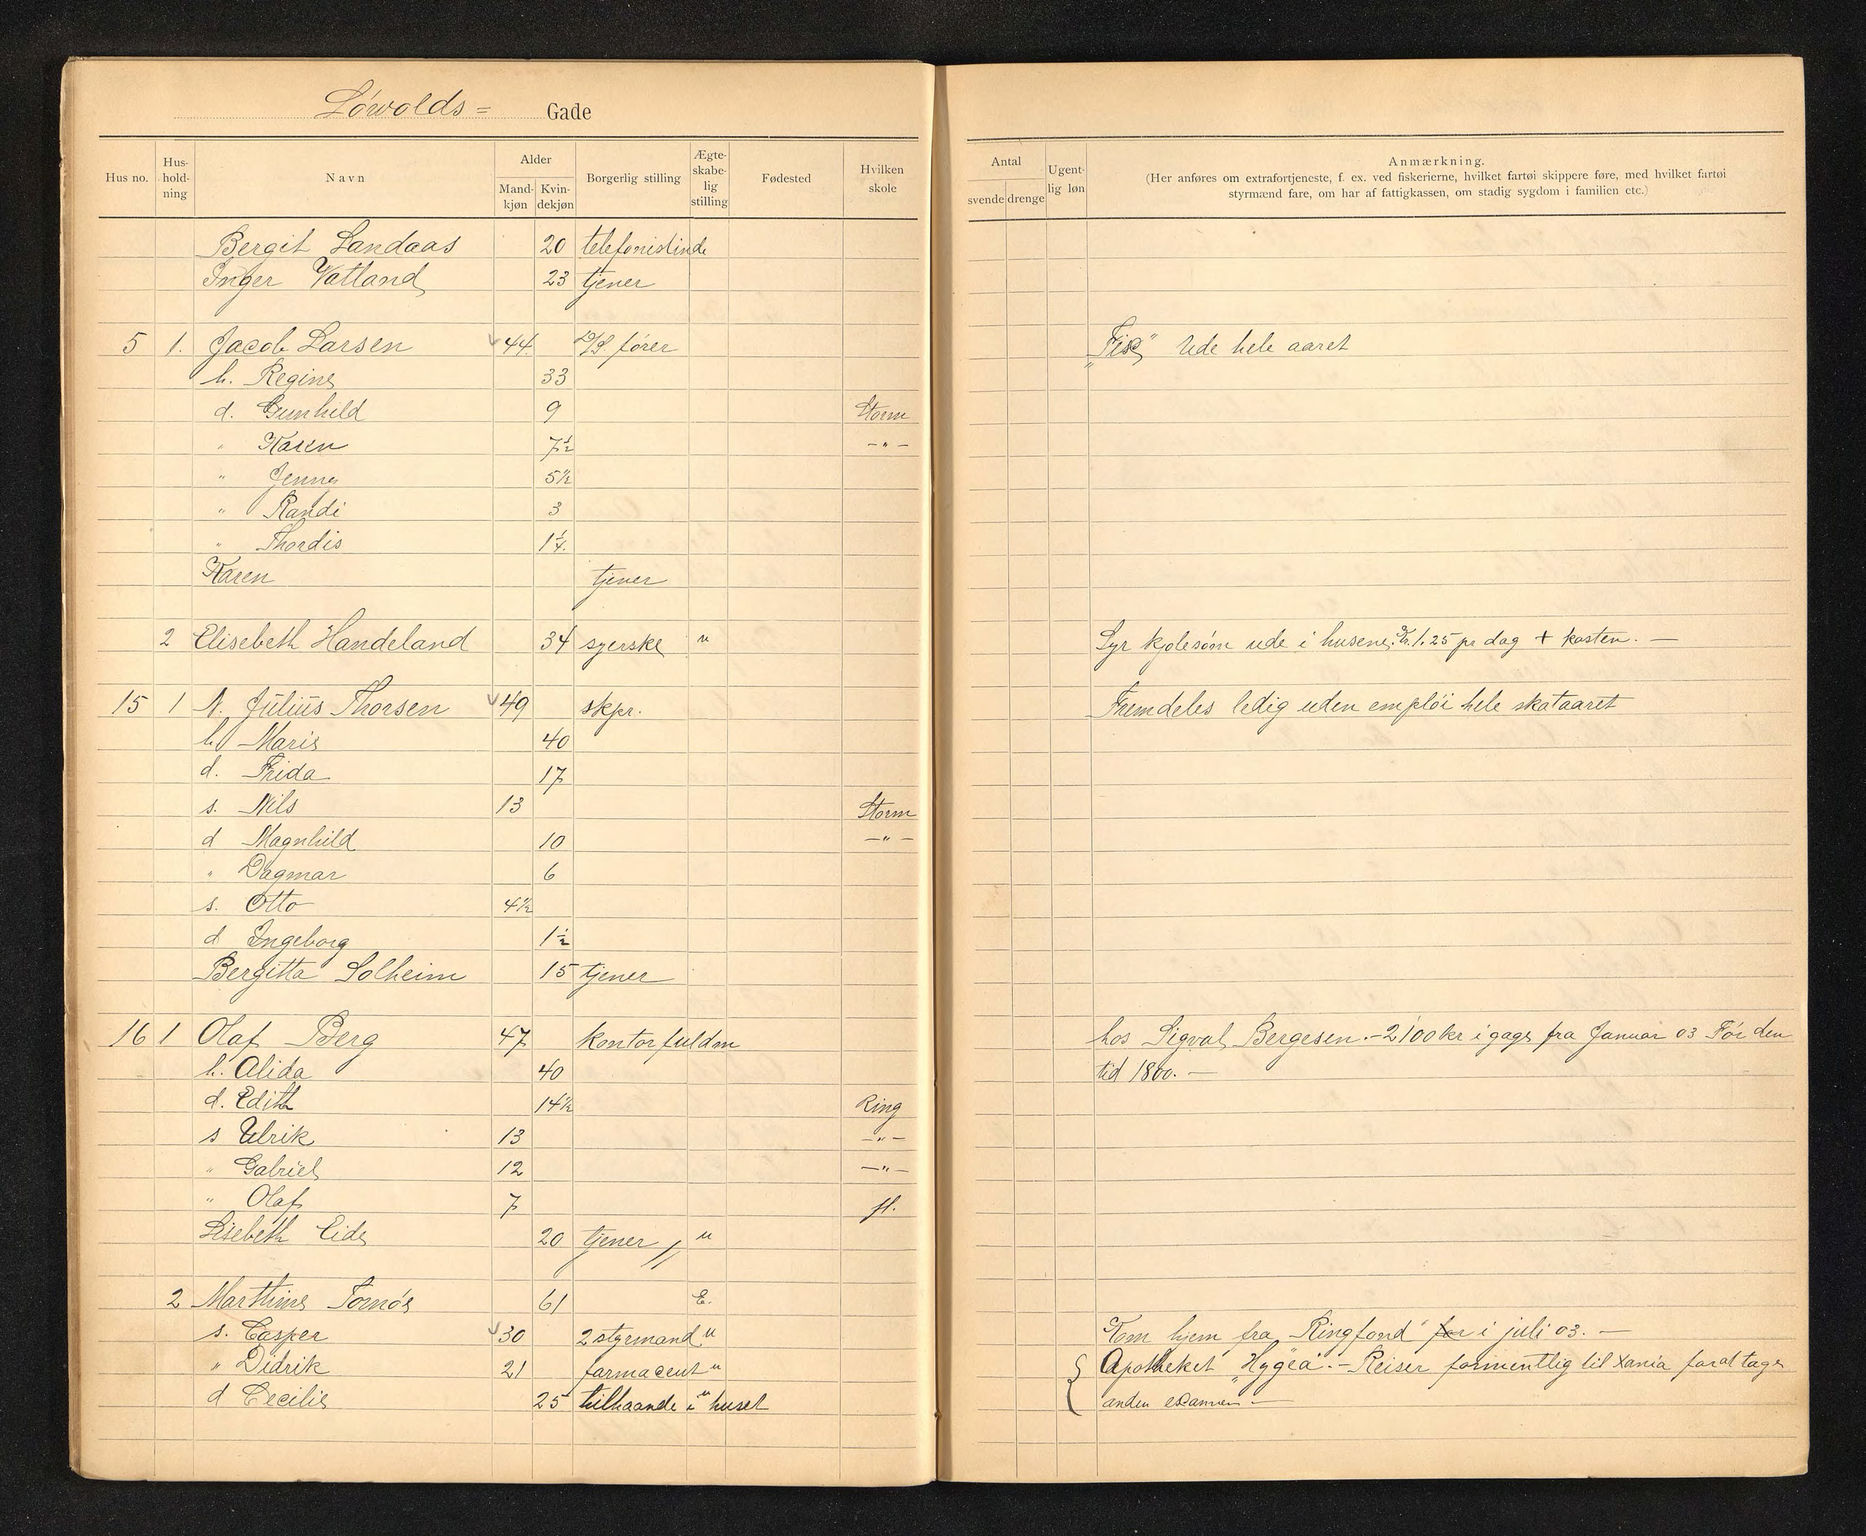 Løwolds= Gade
Hus no. Hus-holdning Navn Alder Mandkjøn Kvindekjøn Borgerlig stilling Ægteskabelig stilling Fødested Hvilken skole
Antal svende drenge Ugentlig løn Anmærkning.
(Her anføres om extrafortjeneste, f. ex. ved fiskerierne, hvilket fartøi skippere føre, med hvilket fartøi
styrmænd fare, om har af fattigkassen, om stadig sygdom i familien etc.)
Bergit Landaas 20 telefonistinde
Inger Vatland 23 tjener
5 1. Jacob Larsen 44 D/S fører Ude hele aaret
h. Regine 33
d. Gunhild 9 Storm
" Karen 7½ -"-
" Jenny 5½
" Randi 3
" Thordis 1¼
Karen tjener
2 Elisebeth Handeland 34 syerske u Syr kjolesøm ude i husene. Kr. 1.25 pr dag + kosten. —
15 1 N. Julius Thorsen 49 skpr. Fremdeles ledig uden emplöi hele skataaret
h Marie 40
d. Frida 17
s. Nils 13 Storm
d Magnhild 10 -"-
" Dagmar 6
s. Otto 4½
d Ingeborg 1½
Bergitta Solheim 15 tjener
16 1 Olaf Berg 47 kontorfuldm hos Sigval Bergesen.- 2100 kr i gage fra Januar 03 Før den
h. Alida 40 tid 1800. —
d. Edith 14½ Ring
s Ulrik 13 -"-
" Gabriel 12 -"-
" Olaf 7 fl.
Lisebeth Eide 20 tjener u
2 Marthine Tornøs 61 E.
s. Casper 30 2 styrmand u Kom hjem fra "Ringfond" for i juli 03. —
" Didrik 21 farmaceut u Apotheket "Hygea". - Reiser formentlig til Xania forat tage
d Cecilie 25 tilhaande i huset u anden examen —